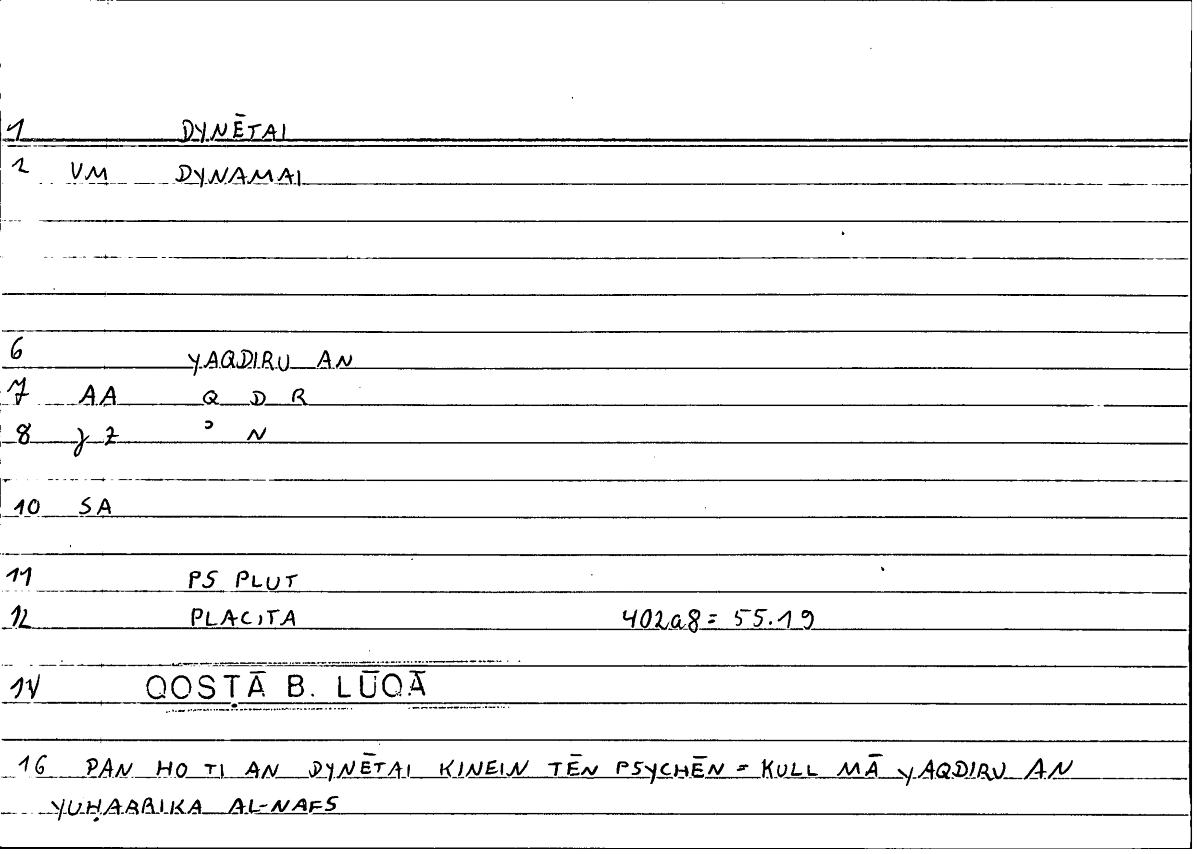 1 DYNĒTAI
2 VM DYNAMAI
6 YAQDIRU AN
7 AA Q D R
8 ȷ Z ʾ N
10 SA
11 PS PLUT
12 PLACITA 402a8 = 55.19
14 QOSṬĀ B. LŪQĀ
16 PAN HO TI AN DYNĒTAI KINEIN TĒN PSYCHĒN = KULL MĀ YAQDIRU AN
YUḤARRIKA AL-NAFS